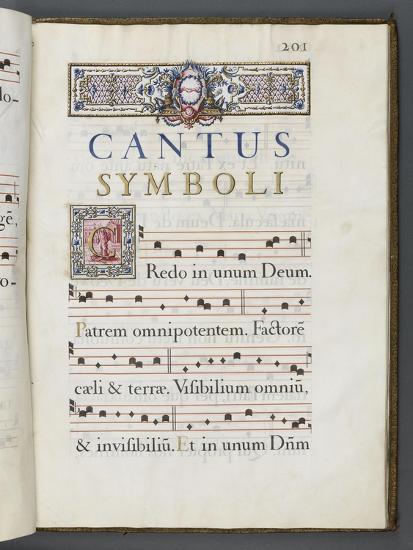 201
CANTUS
SYMBOLI
CRedo in unum Deum.
Patrem omnipotentem. Factorē
cæli & terræ, Viſibilium omniū,
& inviſibiliū. Et in unum Dn̄m
lo-
gē,
o-